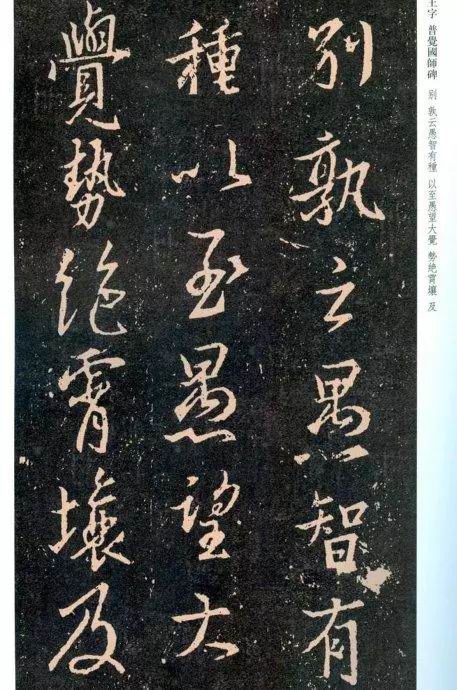 王字 普覺國師碑 別 孰云愚智有種 以至愚望大覺 勢絶霄壤 及
別孰云愚智有
種以至愚望大
覺勢絶霄壤及